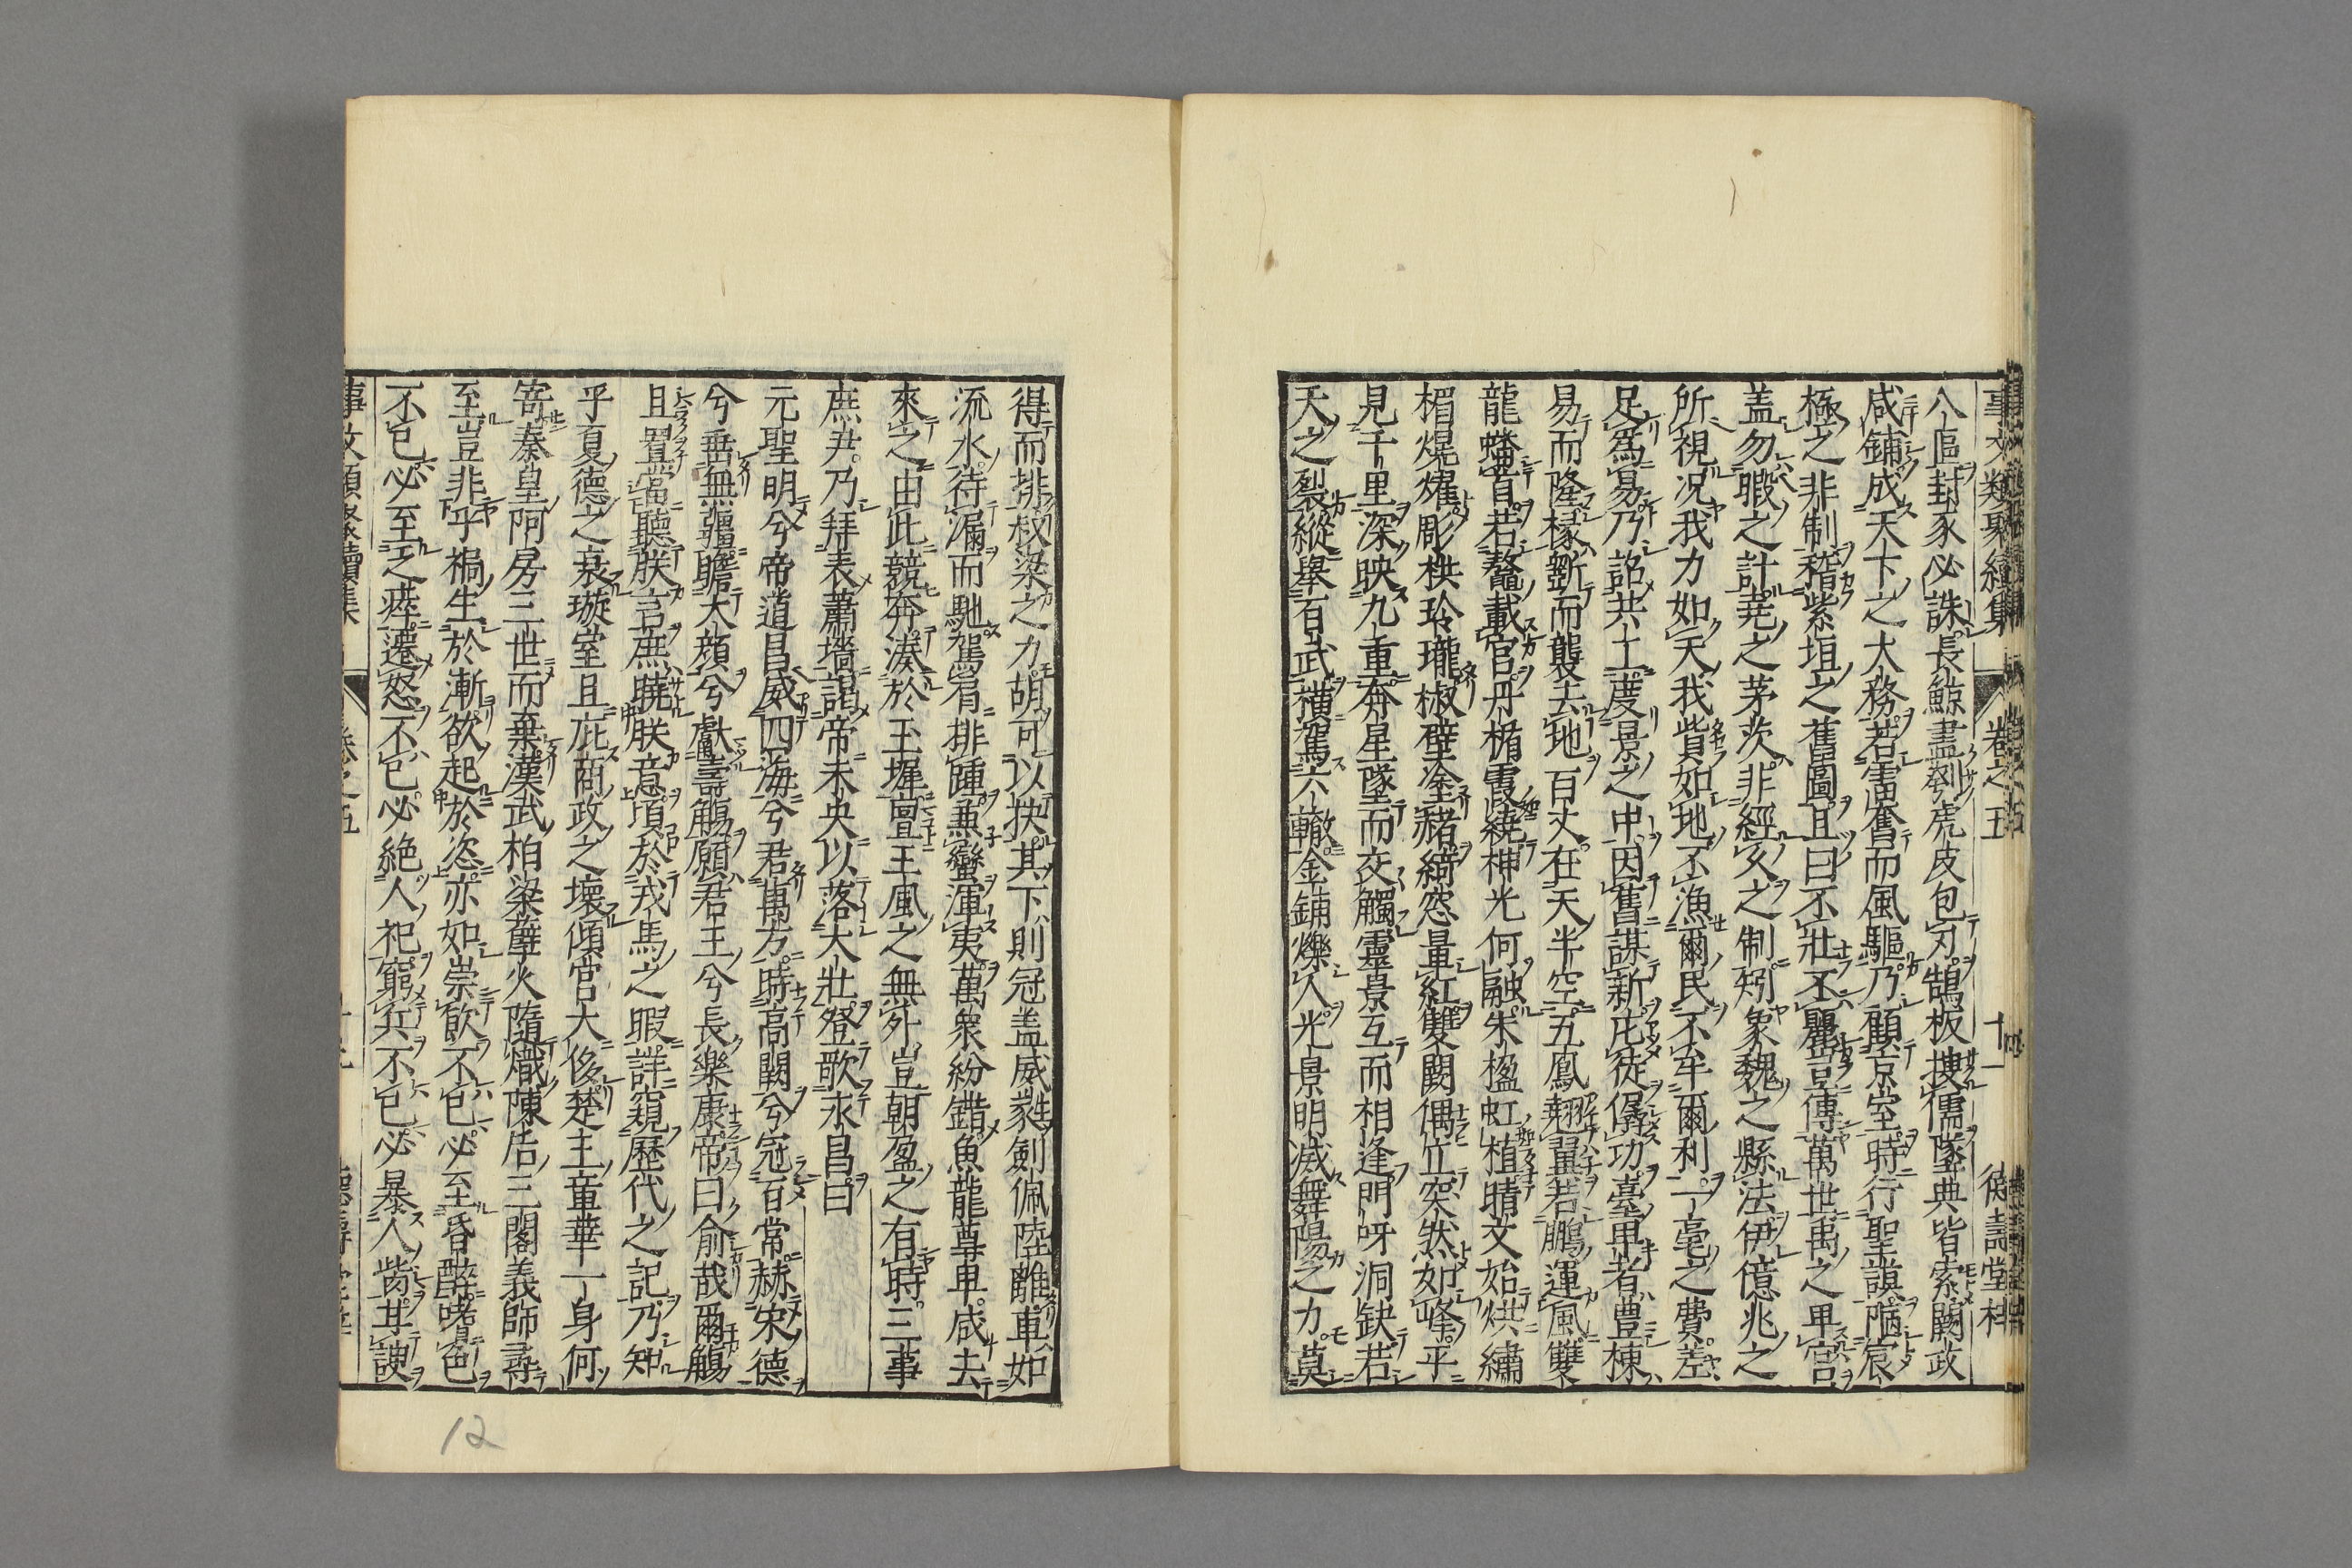 事文類聚續集 卷之五 十一 德壽堂梓
八區封豕必誅長鯨盡剡虎皮包刃鵠板搜儒墜典皆索闕政
咸鋪成天下之大務若雷奮而風驅乃顧京室時行聖謨陋宸
極之非制稽紫垣之舊圖且曰不壯不麗豈傳萬世禹之卑宮
盖勿暇之計堯之茅茨非經久之制矧象魏之縣法伊億兆之
所視况我力如天我貲如地不漁爾民不牟爾利一毫之費差
足爲易乃詔共工度景之中因舊謀新庀徒僝功臺卑者豊棟
易而隆椽斲而襲去地百丈在天半空五鳳翹翼若鵬運風雙
龍蟠首若鼇載宮丹楯霞繞神光何融朱楹虹植晴文始烘繡
楣熀燿彫栱玲瓏椒壁塗赭綺窓暈紅雙闕偶立突然如峰平
見千里深映九重奔星墜而交觸靈景互而相逢門呀洞缺若
天之裂縱舉百武橫駕六轍金鋪爍人光景明滅舞陽之力莫
得而排叔梁之力胡可以抉其下則冠盖威蕤劍佩陸離車如
流水待漏而馳駕肩排踵蕉蠻渾夷萬衆紛錯魚龍尊卑咸去
來之由此競奔湊於玉墀亶王風之無外豈朝盈之有時三事
庶尹乃拜表蕭墻謁帝未央以落大壯登歌永昌曰
元聖明兮帝道昌威四海兮君萬方時高闕兮冠百常赫宋德
兮垂無疆瞻大顔兮獻壽觴願君王兮長樂康帝曰俞哉爾觴
且置當聽朕言庶曉朕意頃於戎馬之暇詳窺歷代之記乃知
乎夏德之衰璇室且庇商政之壞傾宮大侈楚主童華一身何
寄秦皇阿房三世而棄漢武柏梁孽火隨熾陳后三閣義師尋
至豈非乎禍生於漸欲起於恣亦如崇飮不已必至昏醉嗜色
不已必至乏瘁遷怒不已必絶人祀窮兵不已必暴人胔耳諛
事文類聚續集 卷之五